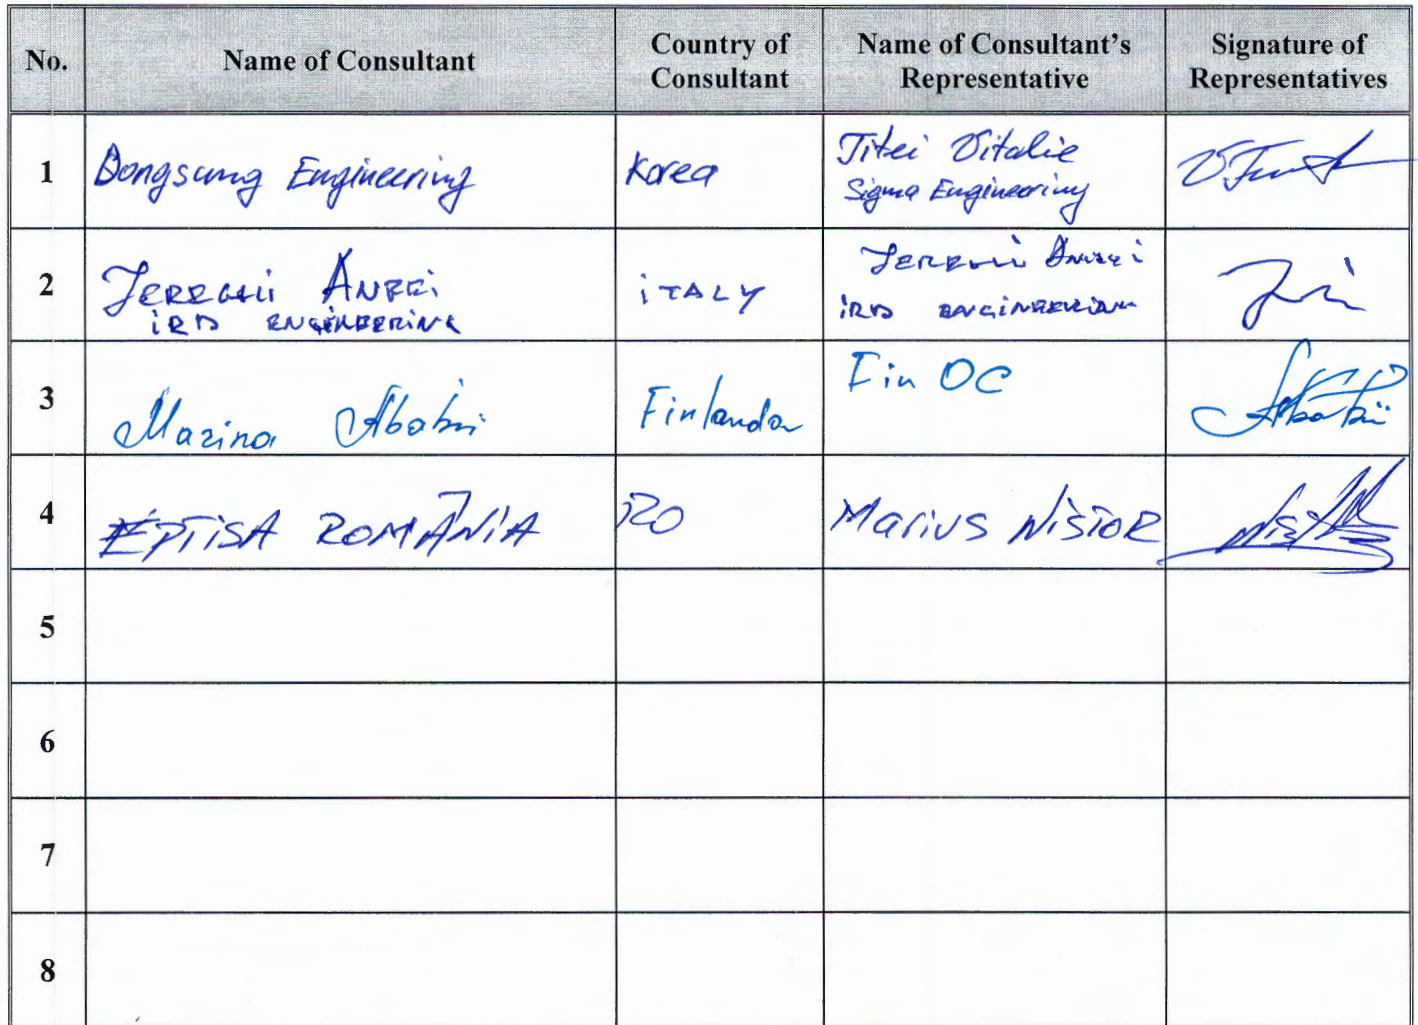 No.
Name of Consultant
Country of
Consultant
Name of Consultant's
Representative
Signature of
Representatives
1
Dongsung Engineering
Korea
Titei Vitalie
Sigma Engineering
2
ITALY
IRD ENGINEERING
IRD ENGINEERING
3
Marina Ababii
Finlanda
Fin OC
4
EPTISA ROMÂNIA
RO
Marius NISTOR
5
6
7
8